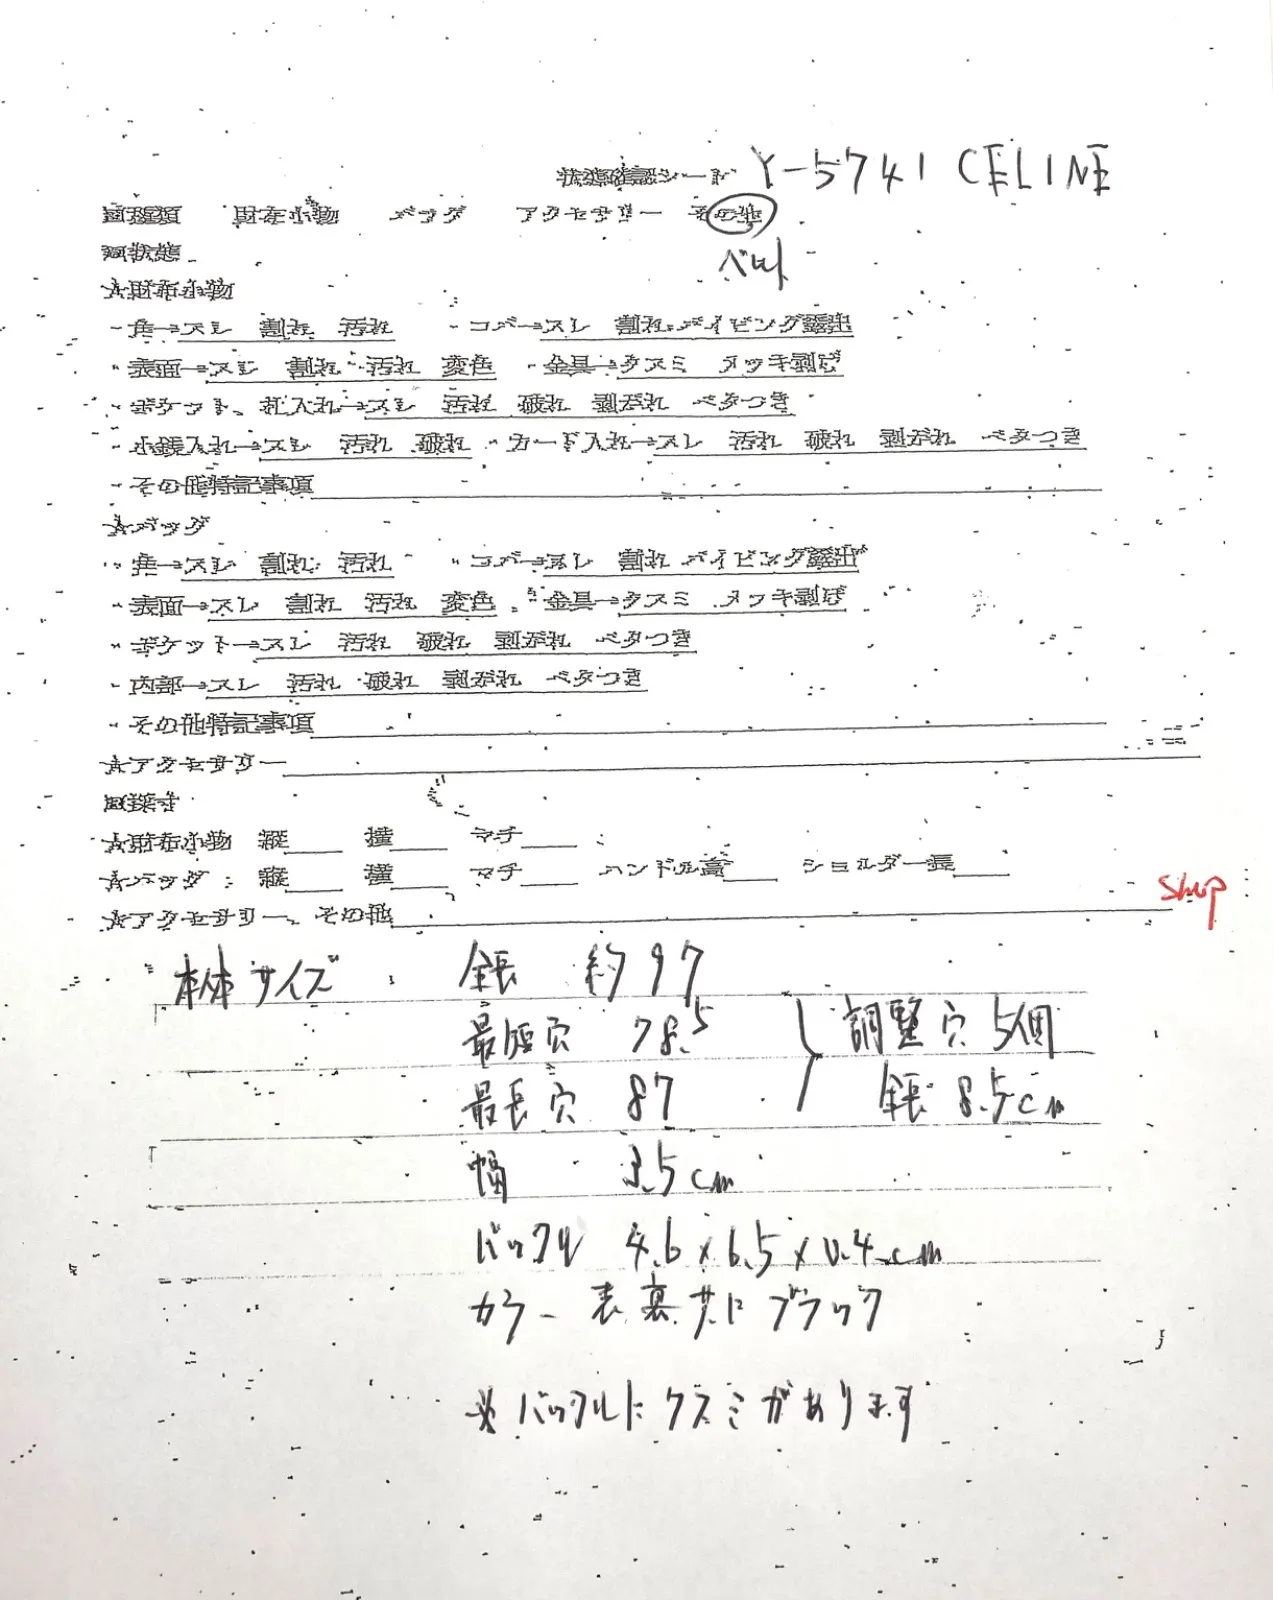 状態確認シート Y-5741 CELINE
財布小物 バッグ アクセサリー その他
回状態 ベルト
☆財布小物
・角→スレ 割れ 汚れ ・コバ→スレ 割れ パイピング露出
・表面→スレ 割れ 汚れ 変色 ・金具→クスミ メッキ剥げ
・ポケット、札入れ→スレ 汚れ 破れ 剥がれ ベタつき
・小銭入れ→スレ 汚れ 破れ ・カード入れ→スレ 汚れ 破れ 剥がれ ベタつき
・その他特記事項
☆バッグ
・角→スレ 割れ 汚れ ・コバ→スレ 割れ パイピング露出
・表面→スレ 割れ 汚れ 変色 ・金具→クスミ メッキ剥げ
・ポケット→スレ 汚れ 破れ 剥がれ ベタつき
・内部→スレ 汚れ 破れ 剥がれ ベタつき
・その他特記事項
☆アクセサリー
回採寸
☆財布小物 縦 横 マチ
☆バッグ: 縦 横 マチ ハンドル高 ショルダー長
☆アクセサリー、その他
shop
本体サイズ 全長 約97
最短穴 78.5 調整穴 5個
最長穴 87 全長 8.5cm
幅 3.5cm
バックル 4.6×6.5×0.4cm
カラー 表裏共に ブラック
※バックルに クスミがあります